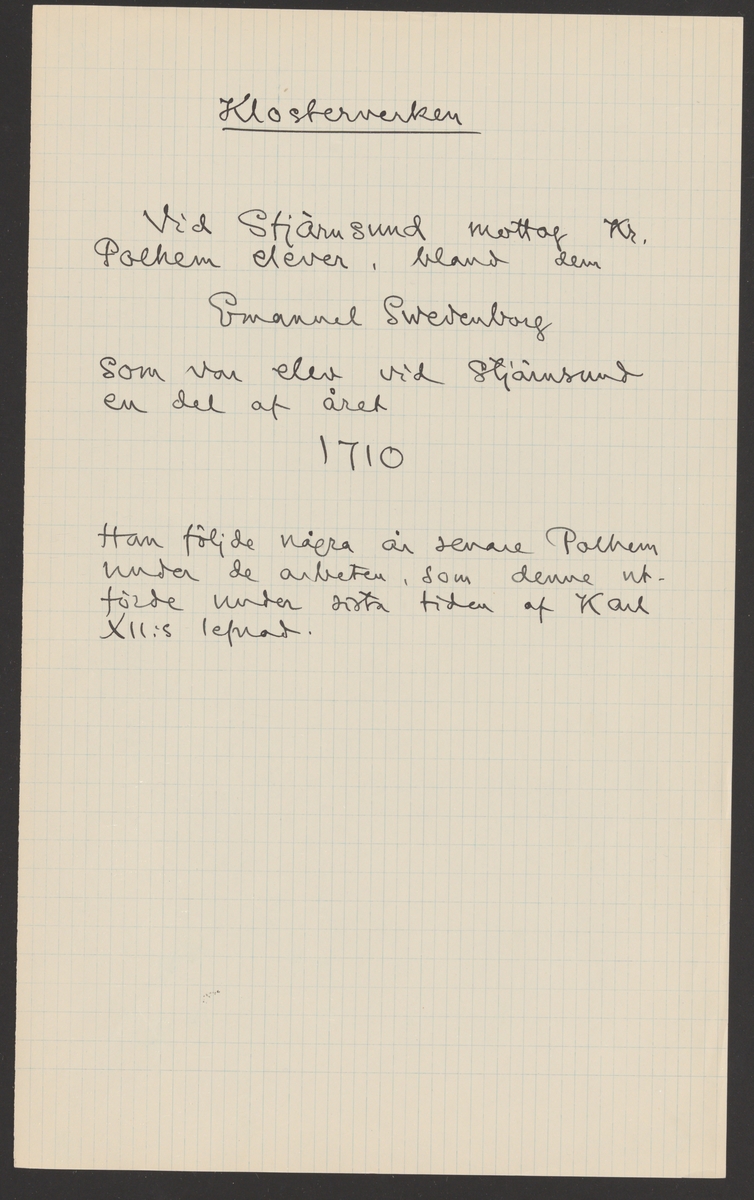 Klosterverken
Vid Stjärnsund mottog Kr.
Polhem elever, bland dem
Emanuel Swedenborg
som var elev vid Stjärnsund
en del af året
1710
Han följde några år senare Polhem
under de arbeten, som denne ut-
förde under sista tiden af Karl
XII:s lefnad.